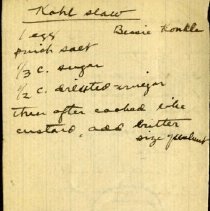 Kohl slaw
1 egg Bessie Konkle
pinch salt
1/3 c. sugar
1/2 c. diluted vinegar
then after cooked like
custard, add butter
size of walnut